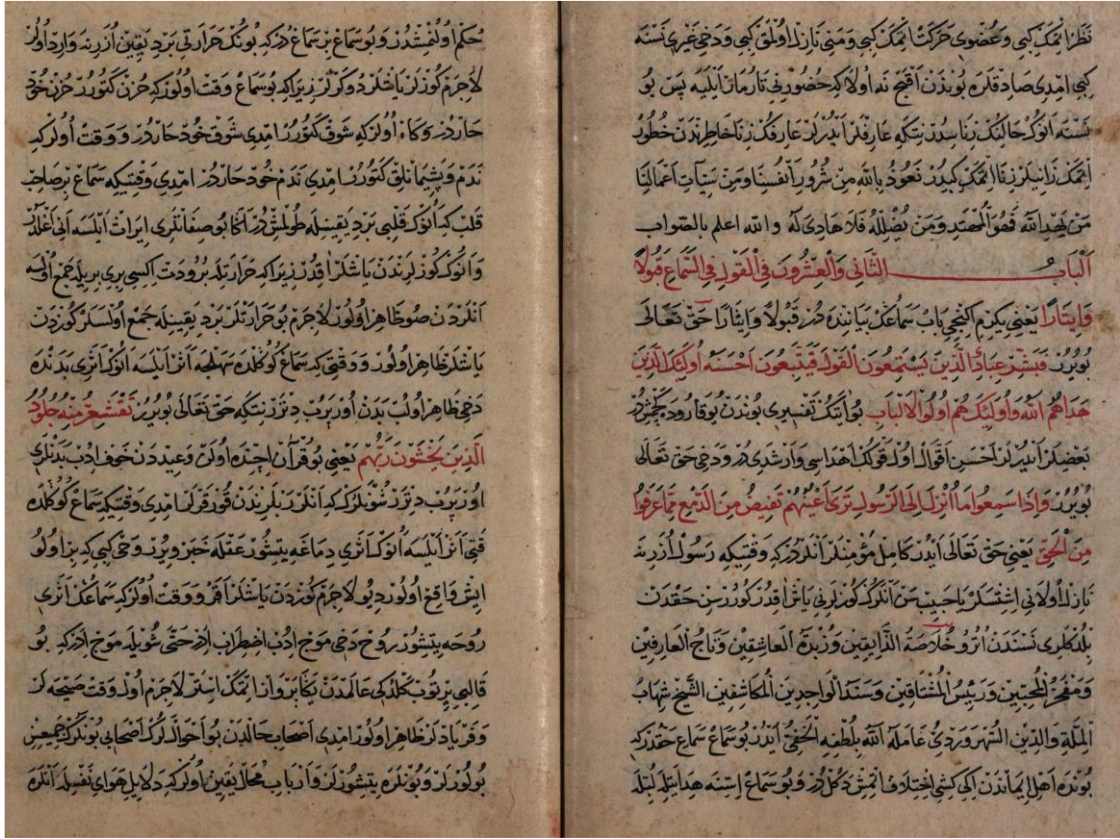 نَظَرْ اتْمَكْ كِبِي وَعُضْوِي حَرَكَتْ اتْمَكْ كِبِي وَمَنِي نَازِلْ اُولْمَقْ كِبِي وَدَخِي غَيْرِي نَسْنَه
كِبِي امْدِي صَادِقْلَرَه بُونْدَنْ اَقْبَحْ نَه اُولَا كِه حُضُورِنِي تَارُمَارْ اَيْلَيَه پَسْ بُو
نَسْنَه اَنُوكْ حَالِنُكْ زِنَاسِدُرْ نِتَكِه عَارِفْلَرْ اَيْدُرْلَرْ عَارِفُكْ زِنَا خَاطِرِنْدَنْ خُطُورْ
اتْمَكْ زَانِيلَرْ زِنَا اتْمَكْ كِبِدُرْ نَعُوذُ بِاللّٰه مِنْ شُرُورِ اَنْفُسِنَا وَمِنْ سَيِّآتِ اَعْمَالِنَا
مَنْ يَهْدِ اللّٰه فَهُوَ الْمُهْتَدِ وَمَنْ يُضْلِلْهُ فَلَا هَادِيَ لَهُ والله اعلم بالصواب
اَلْبَابُ الثَّانِي وَالْعِشْرُونَ فِي الْقَوْلِ فِي السَّمَاعِ قَبُولًا
وَايثَارًا يَعْنِي يِكِرْمِ اكِنْجِي بَابْ سَمَاعُكْ بَيَانِنْدَه دُرْ قَبُولًا وَايثَارًا حَقْ تَعَالَى
بُويُرُرْ فَبَشِّرْ عِبَادِ الَّذِينَ يَسْتَمِعُونَ الْقَوْلَ فَيَتَّبِعُونَ اَحْسَنَهُ اُولَئِكَ الَّذِينَ
هَدَاهُمُ اللّٰه وَاُولَئِكَ هُمْ اُولُوا الْاَلْبَابِ بُو آيَتُكْ تَفْسِيرِي بُونْدَنْ يُوقَارُودَه كَچْمِشْدُرْ
بَعْضِلَرْ اَيْدُرْلَرْ اَحْسَنِ اَقْوَالْ اولْ قَوْلُكْ اَهْدَاسِي وَاَرْشَدِي دُرْ وَدَخِي حَقْ تَعَالَى
بُويُرُرْ وَاِذَا سَمِعُوا مَا اُنْزِلَ اِلَى الرَّسُولِ تَرَى اَعْيُنَهُمْ تَفِيضُ مِنَ الدَّمْعِ مِمَّا عَرَفُوا
مِنَ الْحَقِّ يَعْنِي حَقْ تَعَالَى اَيْدُرْ كَامِلْ مُؤْمِنْلَرْ اَنْلَرْدُرْ كِه وَقْتِيكِه رَسُولْ اُزَرِينَه
نَازِلْ اُولَانِي اشْتْسَلَرْ يَا حَبِيبْ سَنْ اَنْلَرُكْ كُوزْلَرِنِي يَاشْ اَقِدُرْ كُورُرْسِنْ حَقْدَنْ
بِلْدُكْلَرِي نَسْنَدَنْ اُتُرُو خُلَاصَةُ الذَّايِقِينْ وَزُبْدَةُ الْعَاشِقِينْ وَتَاجُ الْعَارِفِينْ
وَمَفْخَرُ الْمُحِبِّينْ وَرَئِيسُ الْمُشْتَاقِينْ وَسَنَدُ الْوَاجِدِينْ الْمُكَاشِفِينْ الشَّيْخْ شِهَابُ
الْمِلَّةِ وَالدِّينِ السُّهْرَوَرْدِيُّ عَامَلَهُ اللّٰه بِلُطْفِهِ الْخَفِيِّ اَيْدُرْ بُو سَمَاعْ سَمَاعِ حَقْدُرْكِه
بُونْدَه اَهْلِ ايمَانْدَنْ اكِي كِشِي اخْتِلَافْ اتْمِشْ دَكُلْ دُرْ وَبُو سَمَاعْ اسِّنَه هِدَايَتِلَه لُبِّلَه
حُكْمْ اُولُنْمِشْدُرْ وَبُو سَمَاعْ بِرْ سَمَاعْ دُرْكِه بُونُكْ حَرَارَتِي بَرْدِ يَقِينْ اُزَرِينَه وَارِدْ اُولُرْ
لَاجَرَمْ كُوزْلَرْ يَاشْلَرْ دُوكَرْلَرْ زِيرَا كِه بُو سَمَاعْ وَقْتْ اُولُورْ كِه حُزْنْ كَتُورُرْ حُزْنْ خُودْ
حَارْدُرْ وَكَاهْ اُولُرْكِه شَوْقْ كَتُورُرْ امْدِي شَوْقْ خُودْ حَارْدُرْ وَوَقْتْ اُولُرْكِه
نَدَمْ وَپَشِيمَانْلِقْ كَتُورُرْ امْدِي نَدَمْ خُودْ حَارْدُرْ امْدِي وَقْتِيكِه سَمَاعْ بِرْ صَاحِبِ
قَلْبْ كِه اَنُوكْ قَلْبِي بَرْدِ يَقِينِلَه طُولْمِشْ دُرْ اَكَا بُو صِفَاتْلَرِي ايرَاثْ اَيْلَسَه اَنِي اَغْلَدُرْ
وَاَنُوكْ كُوزْلَرِنْدَنْ يَاشْلَرْ اَقِدُرْ زِيرَا كِه حَرَارَتْلَه بُرُودَتْ اكِيسِي بِرِي بِرِيلَه جَمْعْ اُولْسَه
اَنْلَرْدَنْ صُو ظَاهِرْ اُولُورْ لَاجَرَمْ بُو حَرَارَتْلَرْ بَرْدِ يَقِينِلَه جَمْعْ اُولْسَلَرْ كُوزْدَنْ
يَاشْلَرْ ظَاهِرْ اُولُورْ وَوَقْتِي كِه سَمَاعْ كُوكُلْدَه سَهْلْجَه اَثَرْ اَيْلَسَه اَنُوكْ اَثَرِي بَدَنْدَه
دَخِي ظَاهِرْ اُولُبْ بَدَنْ اُورْپَرُبْ دِتْرَرْ نِتَكِه حَقْ تَعَالَى بُويُرُرْ تَقْشَعِرُّ مِنْهُ جُلُودُ
الَّذِينَ يَخْشَوْنَ رَبَّهُمْ يَعْنِي بُو قُرْآنْ اچِنْدَه اُولَنْ وَعِيدْدَنْ خَوْفْ ادُبْ بَدَنْلَرِي
اورْپَرُبْ دِتْرَرْ شُونْلَرُكْ كِه اَنْلَرْ رَبْلَرِنْدَنْ قُورْقَرْلَرْ امْدِي وَقْتِيكِه سَمَاعْ كُوكُلْدَه
قَتِي اَثَرْ اَيْلَسَه اَنُوكْ اَثَرِي دِمَاغَه يِتِشُورْ عَقْلَه خَبَرْ وِيرُرْ وَحْيْ كِبِي كِه بِرْ اُولُو
ايشْ وَاقِعْ اُولُورْ دِيُو لَاجَرَمْ كُوزْدَنْ يَاشْلَرْ اَقَرْ وَوَقْتْ اُولُرْكِه سَمَاعُكْ اَثَرِي
رُوحَه يِتِشُورْ رُوحْ دَخِي مَوْجْ ادُبْ اضْطِرَابْ ادَرْ حَتَّى شُويْلَه مَوْجْ ادَرْكِه بُو
قَالِبِي يِرْتُوبْ كَلْدُكِي عَالَمْدَنْ يَكَا پَرْوَازْ اتْمَكْ اسْتَرْ لَاجَرَمْ اُولْ وَقْتْ صَيْحَه لَرْ
وَفَرْيَادْلَرْ ظَاهِرْ اُولُورْ امْدِي اَصْحَابِ حَالْدَنْ بُو اَحْوَالْلَرُكْ اَصْحَابِي بُونْلَرُكْ جَمِيعِسِنْ
بُولُورْلَرْ وَبُونْلَرَه يِتِشُورْلَرْ وَاَرْبَابِ مُحَالْ يَقِينْ اُولُرْكِه دَلَايِلِ هَوَايِ نَفْسِلَه اَنْلَرَه